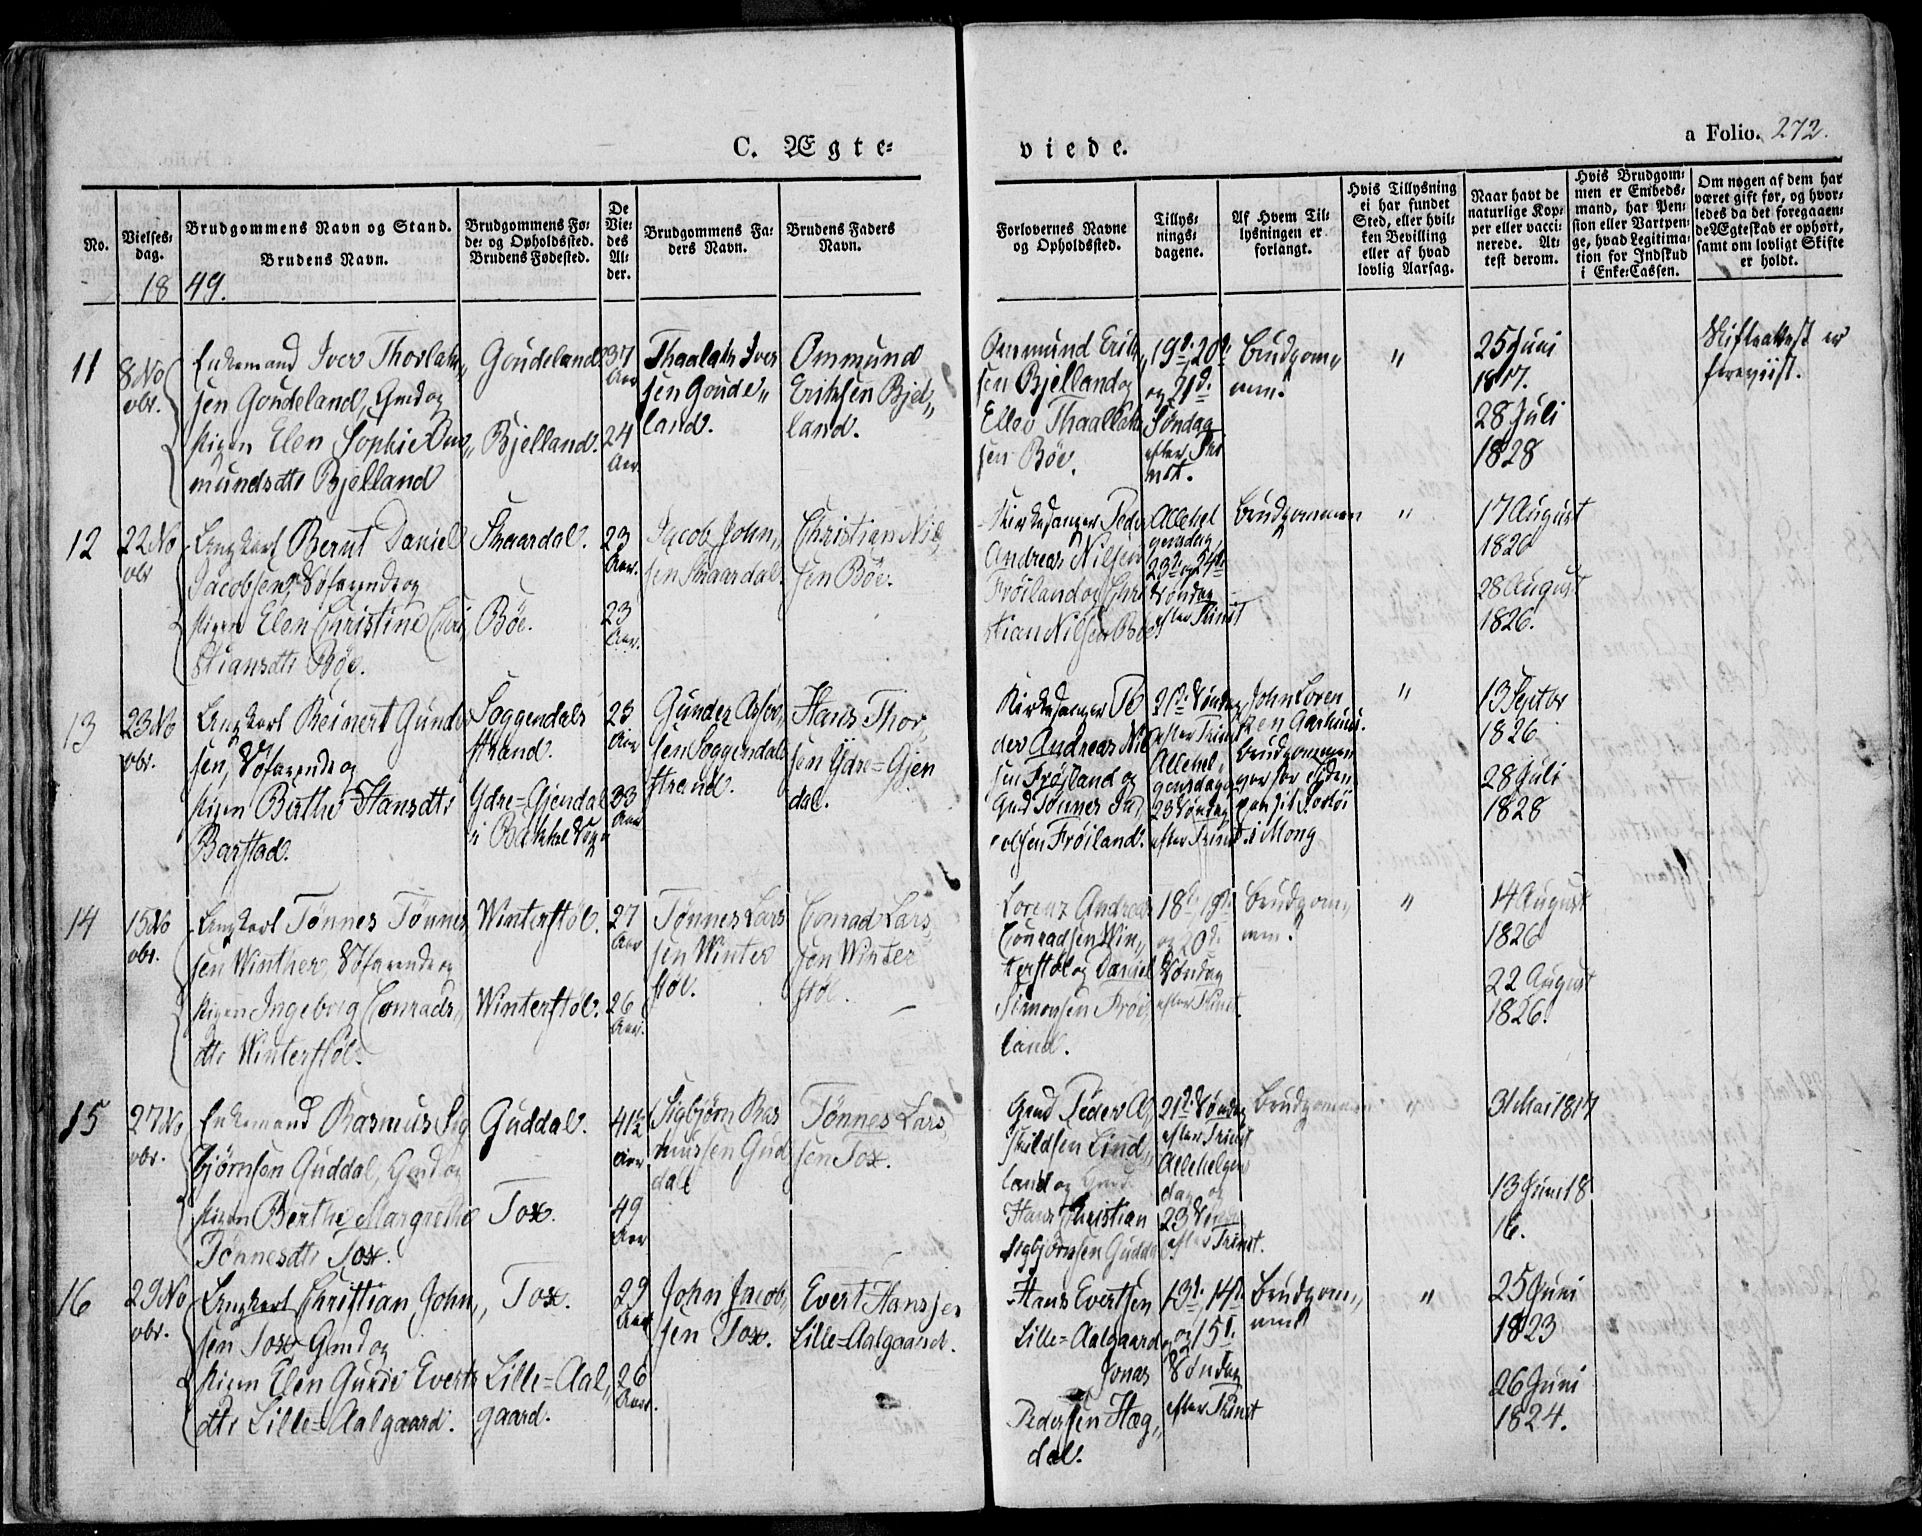 C. Ægte-
viede.
a Folio. 272.
No.
Vielses-
dag.
Brudgommens Navn og Stand.
Brudens Navn.
Brudgommens Fø-
de- og Opholdssted.
Brudens Fødested.
De
Vie-
des
Al-
der.
Brudgommens Fa-
ders Navn.
Brudens Faders
Navn.
Forlovernes Navne
og Opholdssted.
Tillys-
nings-
dagene.
Af Hvem Til-
lysningen er
forlangt.
Hvis Tillysning
ei har fundet
Sted, eller hvil-
ken Bevilling
eller af hvad
lovlig Aarsag.
Naar havt de
naturlige Kop-
per eller vacci-
nerede. At-
test derom.
Hvis Brudgom-
men er Embeds-
mand, har Pen-
sion eller Vartpen-
ge, hvad Legitima-
tion for Indskud
i Enke-Cassen.
Om nogen af dem har
været gift før, og hvor-
ledes da det foregaaen-
de Ægteskab er ophørt,
samt om lovligt Skifte
er holdt.
18 49.
11
8 No
vbr.
Enkemand Iver Thorlak„
sen Goudeland, Gmd og
Pigen Elen Sophie Om„
mundsdtr Bjelland
Goudeland
Bjelland.
37
Aar
24
Aar.
Thaalak Iver
sen Goude„
land.
Ommund
Eriksen Bjel„
land.
Ommund Erik„
sen Bjelland og
Ellev Thaallak
sen Bøe.
19de 20de
og 21de
Søndag
efter Tri
nit.
Brudgom„
men.
"
25 Juni
1817.
28 Juli
1828
Skifteattest er
foreviist.
12
22 No
vbr
Ungkarl Bernt Daniel
Jacobsen, Søfarende og
Pigen Elen Christine Chri
stiansdtr Bøe.
Skaardal.
Bøe.
23
Aar.
23
Aar.
Jacob John„
sen Skaardal.
Christian Nil„
sen Bøe.
Kirkesanger Peder
Andreas Nilsen
Frøiland og Chri
stian Nilsen Bøe
Allehel
gensdag,
23de og 24de
Søndag
efter Trinit
Brudgommen
"
17 August
1826
28 August
1826.
13
23 No
vbr.
Ungkarl Reinert Gunder
sen, Søfarende og
Pigen Berthe Hansdtr
Barstad.
Soggendals
strand.
Ydre=Gjendal
i Bakke Sogn
23
Aar
23
Aar
Gunder Aslov„
sen Soggendals
strand.
Hans Thor„
sen Ydre=Gjen
dal.
Kirkesanger Pe
der Andreas Nil
sen Frøiland og
Gmd Tønnes Ja„
cobsen Frøiland.
21de Søndag
efter Trinit
Allehel„
gensdag og
23 Søndag
efter Trinit
John Loren
tzen Aarhuus.
Brudgommen
i Mong
"
13 Septbr
1826
28 Juli
1828
14
15 No
vbr.
Ungkarl Tønnes Tønnes
sen Winther, Søfarende og
Pigen Ingeborg Conrads„
dtr Winterstøl.
Winterstøl.
Winterstøl.
27
Aar
26
Aar.
Tønnes Lars
sen Winter
støl.
Conrad Lars„
sen Winter
støl.
Lorenz Andreas
Conradsen Win„
terstøl og Daniel
Simonsen Frøi„
land.
18de 19de
og 20de
Søndag
efter Trinit.
Brudgom„
men.
"
14 August
1826
22 August
1826.
15
27 No
vbr.
Enkemand Rasmus Sig
bjørnsen Guddal, Gmd og
Pigen Berthe Margrethe
Tønnesdtr Tox.
Guddal.
Tox.
41½
Aar
49
Aar
Sigbjørn Ras
mussen Gud
dal
Tønnes Lars„
sen Tox.
Gmd Peder A„
skildsen Lind„
land og Gmd
Hans Christian
Sigbjørnsen Guddal
21de Søndag
efter Trinit
Allehelgen
dag og
23 Søndag
efter Trinit.
Brudgommen
"
31 Mai 1817
13 Juni 18
16.
16
29 No
vbr.
Ungkarl Christian John„
sen Tox Gmd og
Pigen Elen Gurie Everts
dtr Lille=Aalgaard.
Tox.
Lille=Aal„
gaard.
29
Aar
26
Aar.
John Jacob„
sen Tox.
Evert Hanssen
Lille=Aalgaard.
Hans Evertsen
Lille=Aalgaard og
Jonas
Pedersen Hæg„
dal.
13de 14de
og 15de
Søndag
efter Trinit
Brudgom„
men
"
25 Juni
1823
26 Juni
1824.